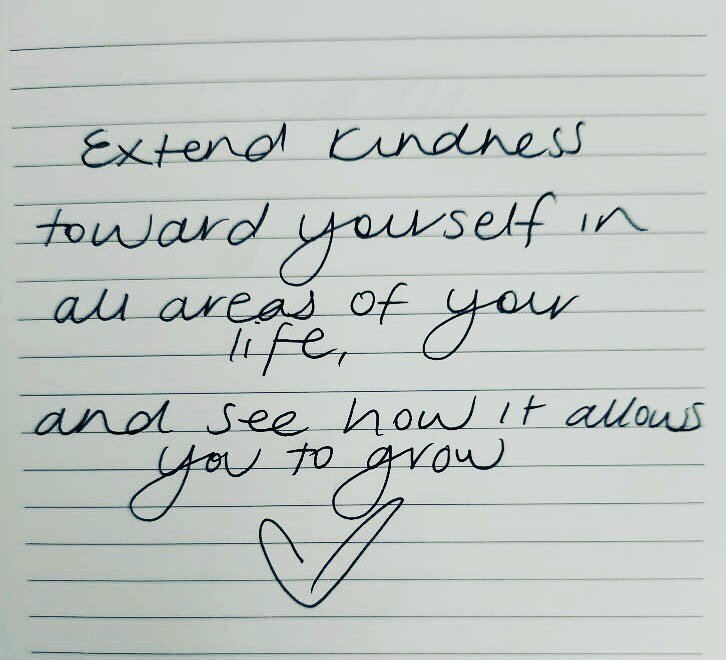 Extend kindness
toward yourself in
all areas of your
life,
and see how it allows
you to grow